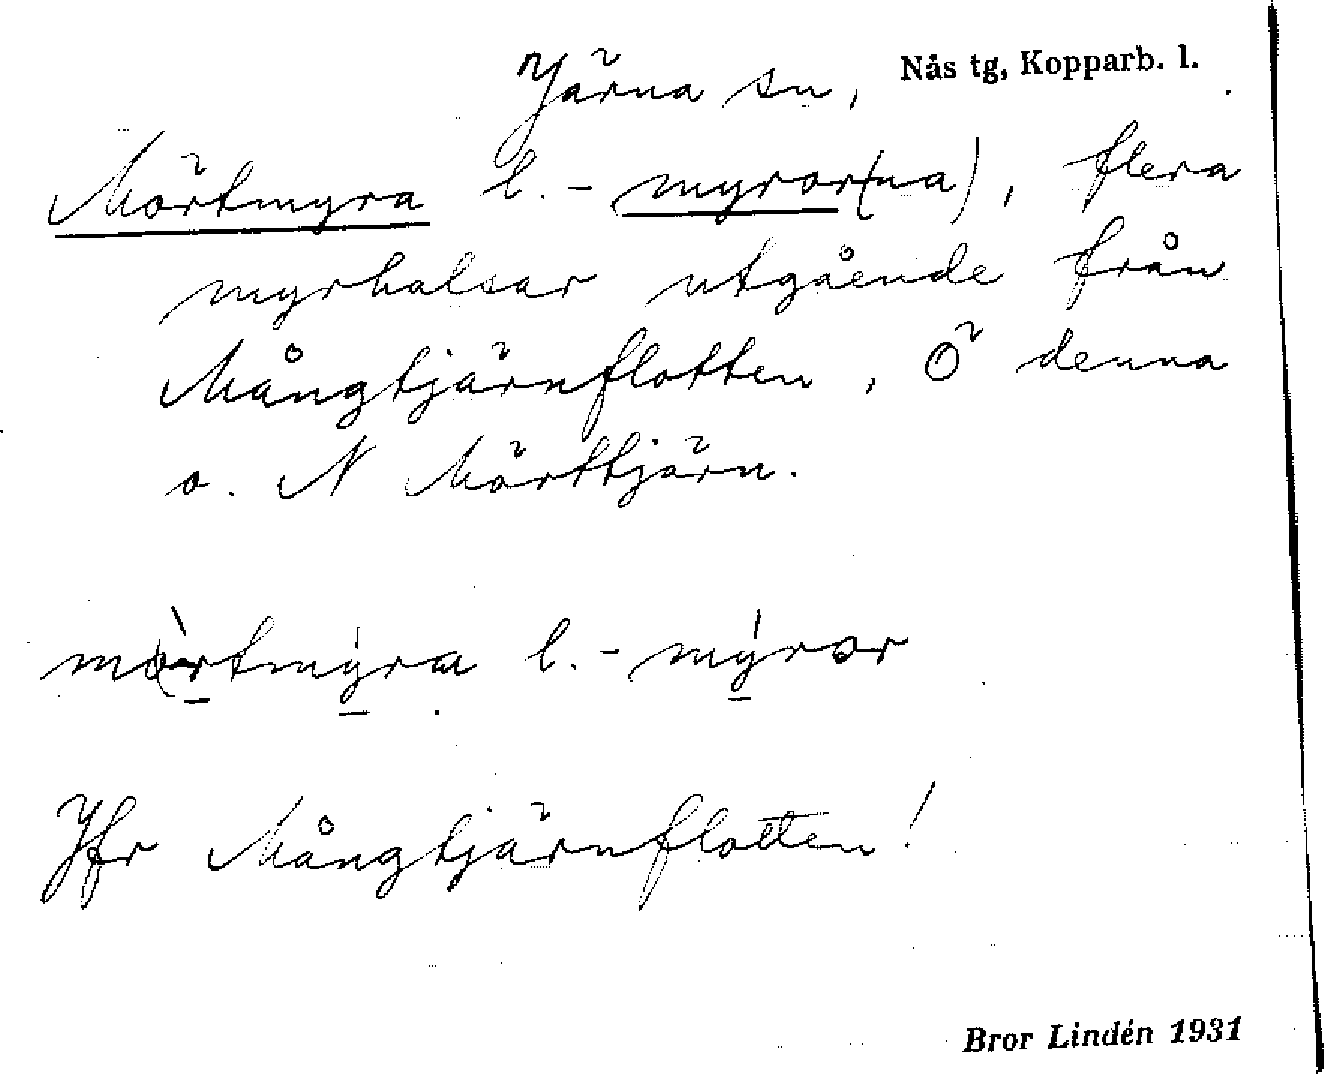 Järna sn, Nås tg, Kopparb. l.
Mörtmyra l. -myror(na), flera
myrhalsar utgående från
Mångtjärnflotten, Ö denna
o. N Mörttjärn.
mo̯rtmyra l. -myror
Jfr Mångtjärnflotten!
Bror Lindén 1931